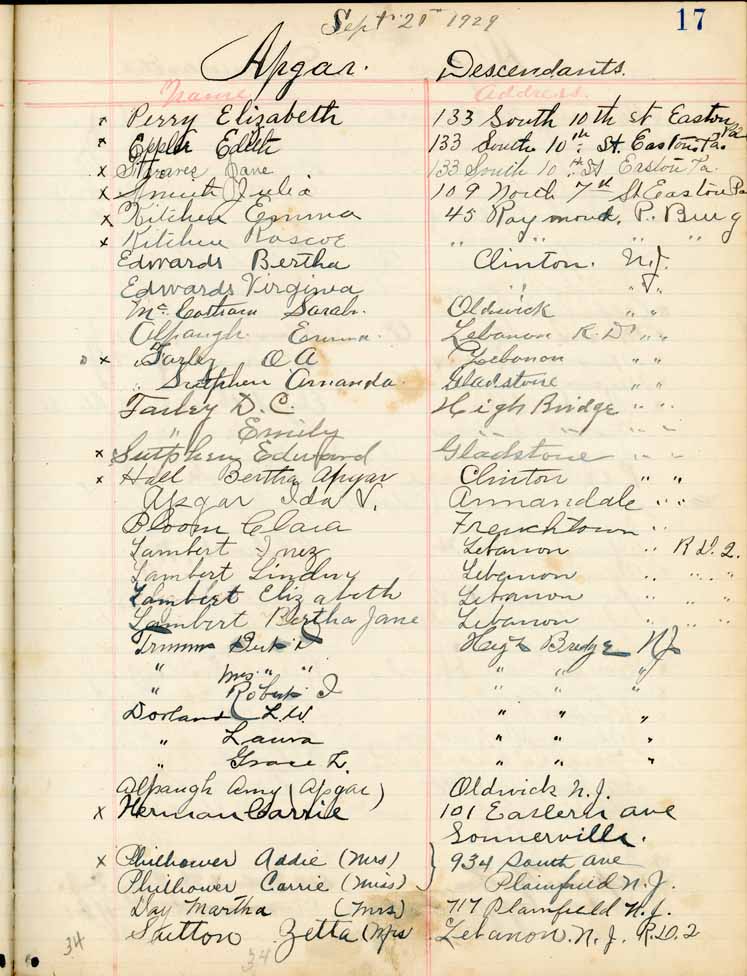 Sept 21st 1929
17
Apgar. Descendants.
Name Address.
x Perry Elizabeth 133 South 10th st Easton Pa
x Edith 133 South 10th St. Easton Pa.
x Jane 133 South 10th St Easton Pa.
x Smith Julia 109 North 7th St Easton Pa
x Kitchen Emma 45 Raymond. P. Burg
x Kitchen Roscoe " " " "
Edwards Bertha Clinton. N.J.
Edwards Virginia " " "
Sarah. Oldwick " "
Alpaugh Emma. Lebanon R.D. " "
x Farley O A Lebanon " "
" Sutphen Amanda. Gladstone " "
Farley D. C. High Bridge " "
" Emily " " " "
x Sutphen Edward Gladstone " "
x Hall Bertha Apgar Clinton " "
Apgar Ida V. Annandale " "
Bloom Clara Frenchtown "
Lambert Inez Lebanon " R D. 2.
Lambert Lindley Lebanon " " "
Lambert Elizabeth Lebanon " " "
Lambert Bertha Jane Lebanon " " "
High Bridge NJ
" Mrs. " " " " "
" Robert J " " "
Dorland L.W. " " "
" Laura " " "
" Grace L. " " "
Alpaugh Amy (Apgar) Oldwick N.J.
x Herman Carrie 101 Eastern ave
Sommerville.
x Philhower Addie (Mrs) } 934 South ave
Philhower Carrie (Miss) Plainfield N.J.
Day Martha (Mrs) 717 Plainfield N.J.
Sutton Zetta (Mrs Lebanon. N.J. R.D.2
34
34